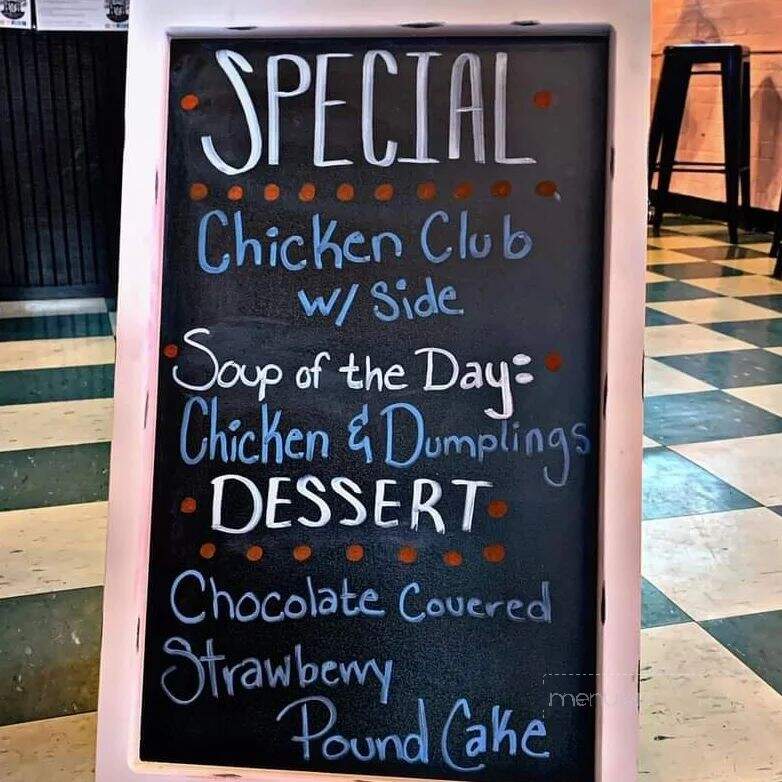 SPECIAL
Chicken Club
w/ Side
Soup of the Day:
Chicken & Dumplings
DESSERT
Chocolate Covered
Strawberry
Pound Cake